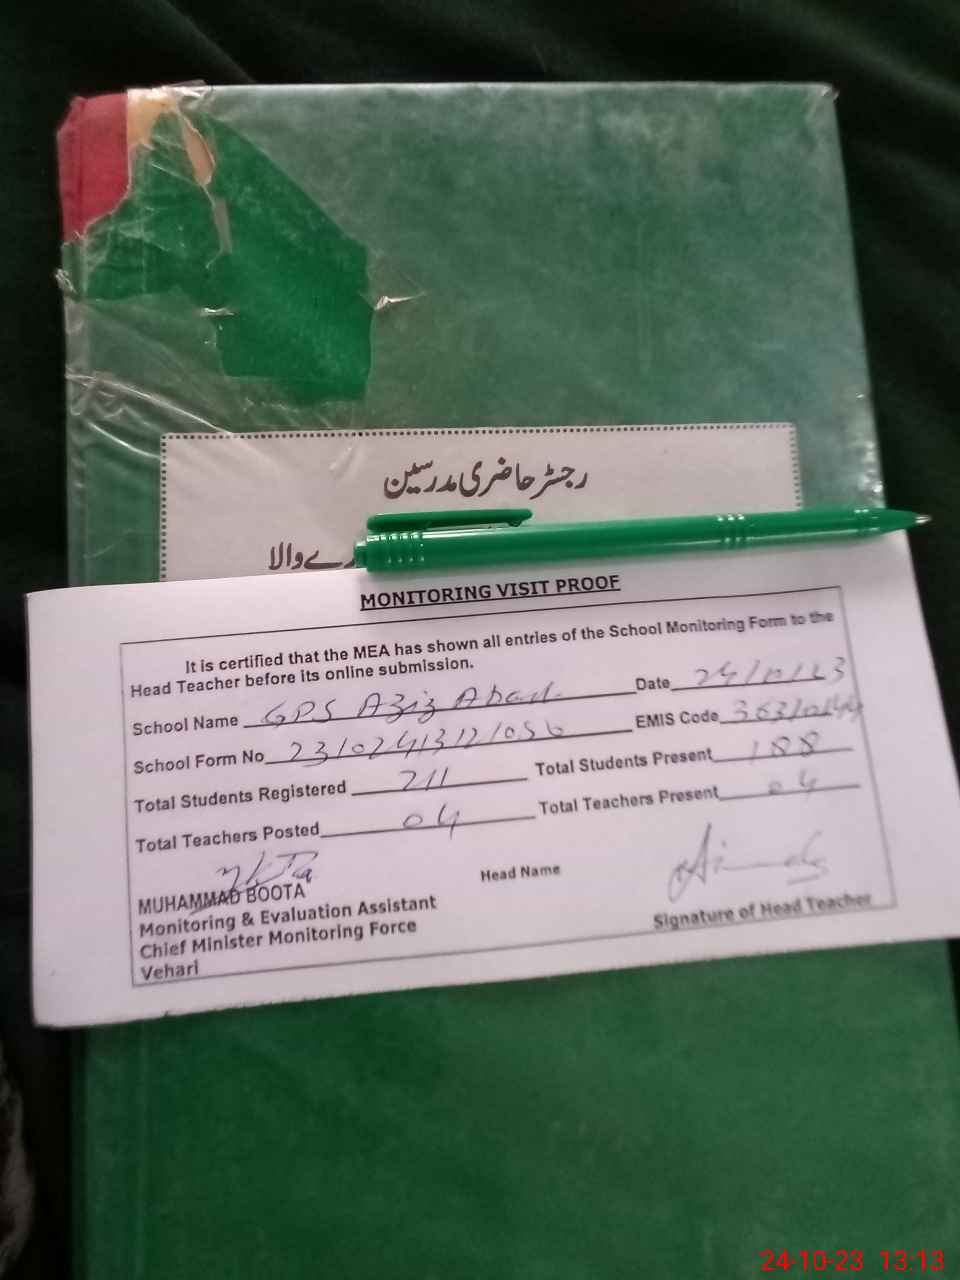 رجسٹر حاضری مدرسین
رے والا
MONITORING VISIT PROOF
It is certified that the MEA has shown all entries of the School Monitoring Form to the
Head Teacher before its online submission.
School Name GPS Aziz Abad Date 24/10/23
School Form No EMIS Code
Total Students Registered 211 Total Students Present 188
Total Teachers Posted 04 Total Teachers Present 04
MUHAMMAD BOOTA Head Name
Monitoring & Evaluation Assistant Signature of Head Teacher
Chief Minister Monitoring Force
Vehari
24-10-23 13:13